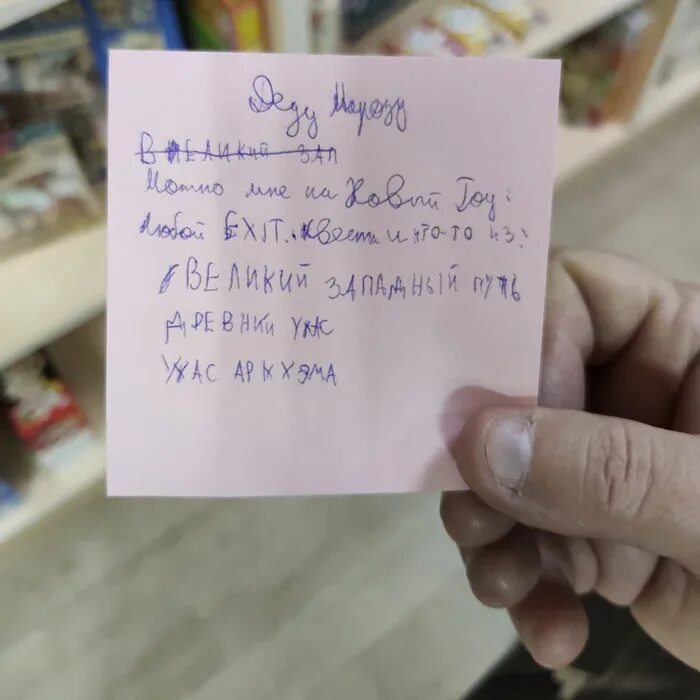 Деду Морозу
ВЕЛИКИЙ ЗАП
Можно мне на Новый Год:
Любой EXIT. Квест и что-то из:
ВЕЛИКИЙ ЗАПАДНЫЙ ПУТЬ
ДРЕВНИЙ УЖС
УЖАС АРКХЭМА